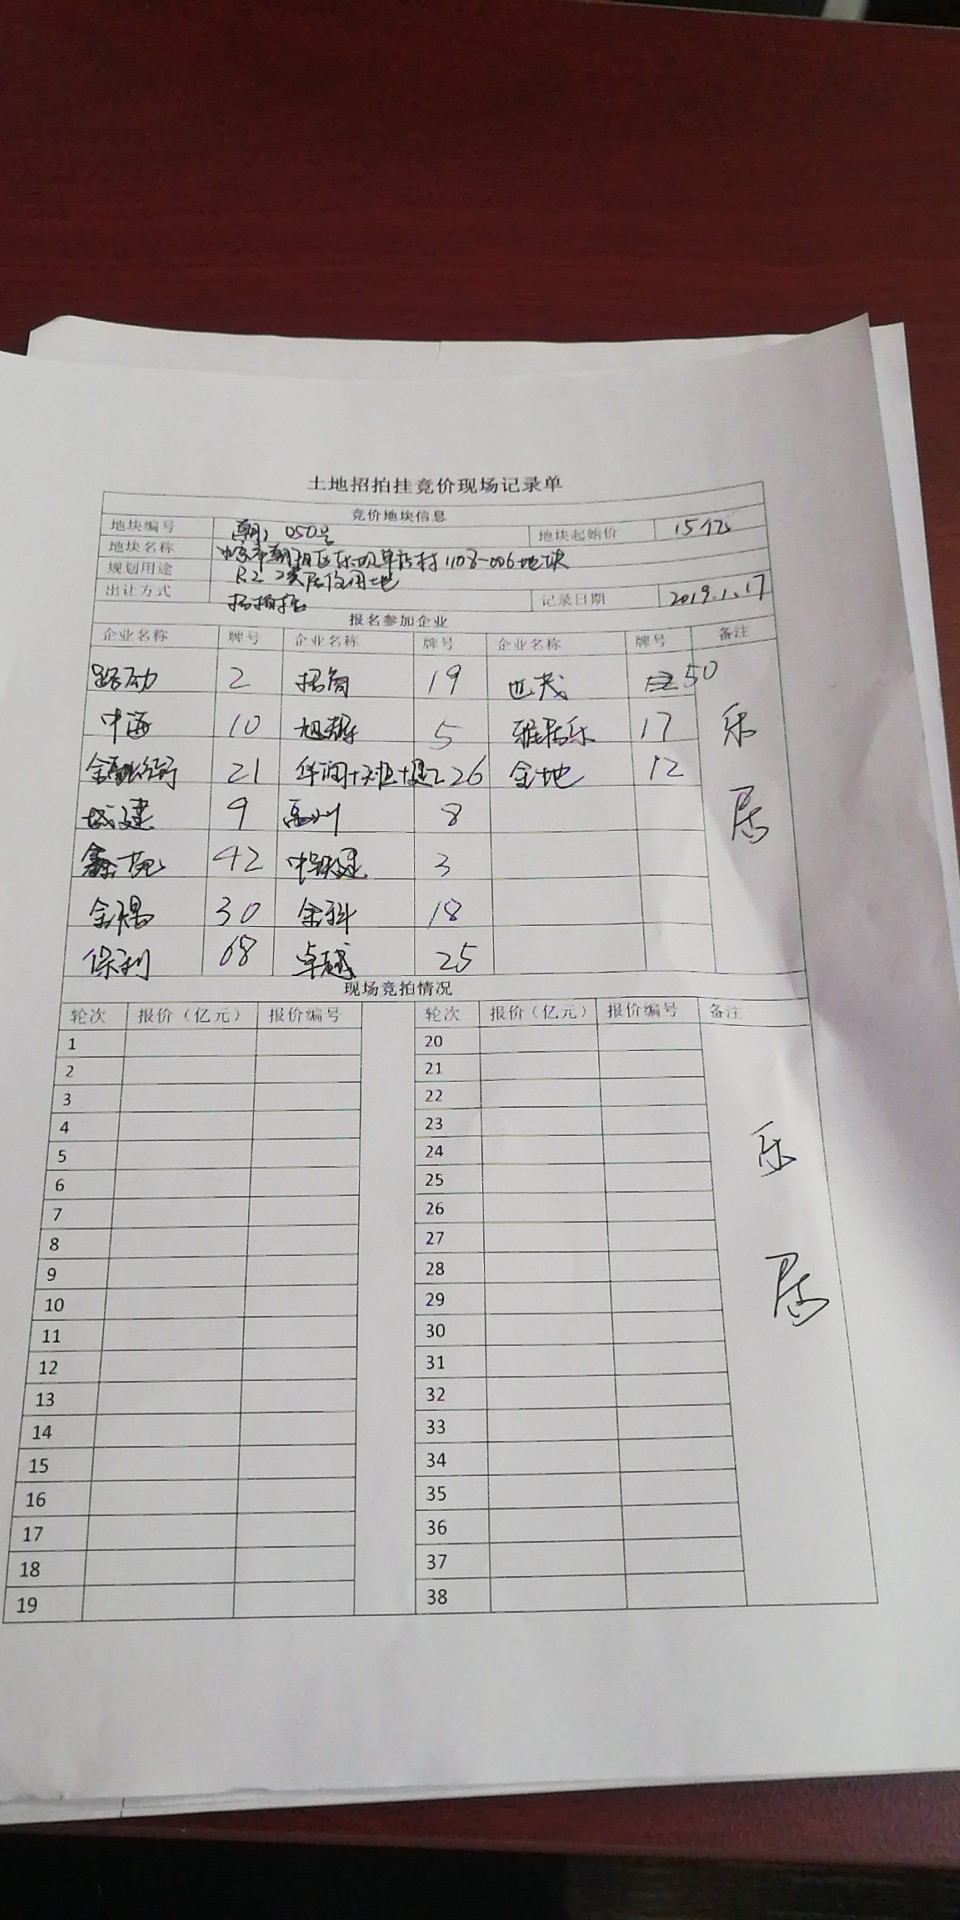 土地招拍挂竞价现场记录单
竞价地块信息
地块编号 朝 050号 地块起始价 15亿
地块名称 北京市朝阳区东坝单店村1108-006地块
规划用途 R2二类居住用地
出让方式 招拍挂 记录日期 2019.1.17
报名参加企业
企业名称 牌号 企业名称 牌号 企业名称 牌号 备注
路劲 2 招商 19 世茂 50
中海 10 旭辉 5 雅居乐 17 乐
金融街 21 华润+ 26 金地 12
城建 9 禹洲 8 居
鑫苑 42 中铁建 3
金隅 30 金科 18
保利 68 卓越 25
现场竞拍情况
轮次 报价（亿元） 报价编号 轮次 报价（亿元） 报价编号 备注
1 20
2 21
3 22
4 23
5 24 乐
6 25
7 26
8 27
9 28 居
10 29
11 30
12 31
13 32
14 33
15 34
16 35
17 36
18 37
19 38